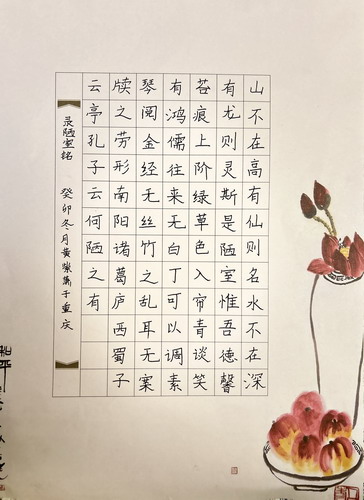 山不在高有仙则名水不在深
有龙则灵斯是陋室惟吾德馨
苔痕上阶绿草色入帘青谈笑
有鸿儒往来无白丁可以调素
琴阅金经无丝竹之乱耳无案
牍之劳形南阳诸葛庐西蜀子
云亭孔子云何陋之有
录陋室铭 癸卯冬月黄于重庆
和平